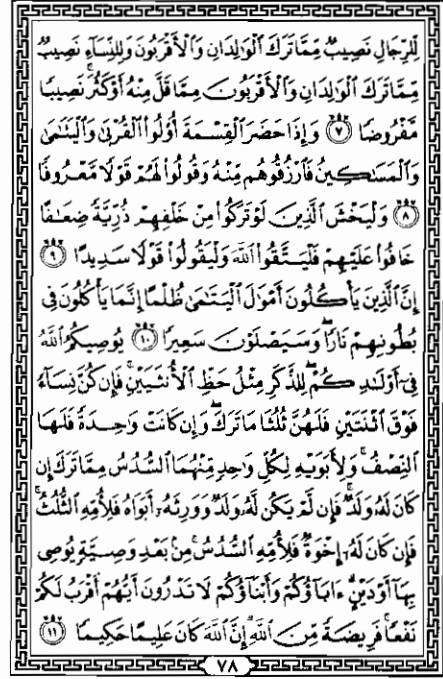 لِّلرِّجَالِ نَصِيبٌ مِّمَّا تَرَكَ ٱلْوَٰلِدَانِ وَٱلْأَقْرَبُونَ وَلِلنِّسَآءِ نَصِيبٌ
مِّمَّا تَرَكَ ٱلْوَٰلِدَانِ وَٱلْأَقْرَبُونَ مِمَّا قَلَّ مِنْهُ أَوْ كَثُرَ ۚ نَصِيبًا
مَّفْرُوضًا ٧ وَإِذَا حَضَرَ ٱلْقِسْمَةَ أُو۟لُوا۟ ٱلْقُرْبَىٰ وَٱلْيَتَٰمَىٰ
وَٱلْمَسَٰكِينُ فَٱرْزُقُوهُم مِّنْهُ وَقُولُوا۟ لَهُمْ قَوْلًا مَّعْرُوفًا
٨ وَلْيَخْشَ ٱلَّذِينَ لَوْ تَرَكُوا۟ مِنْ خَلْفِهِمْ ذُرِّيَّةً ضِعَٰفًا
خَافُوا۟ عَلَيْهِمْ فَلْيَتَّقُوا۟ ٱللَّهَ وَلْيَقُولُوا۟ قَوْلًا سَدِيدًا ٩
إِنَّ ٱلَّذِينَ يَأْكُلُونَ أَمْوَٰلَ ٱلْيَتَٰمَىٰ ظُلْمًا إِنَّمَا يَأْكُلُونَ فِى
بُطُونِهِمْ نَارًا ۖ وَسَيَصْلَوْنَ سَعِيرًا ١٠ يُوصِيكُمُ ٱللَّهُ
فِىٓ أَوْلَٰدِكُمْ ۖ لِلذَّكَرِ مِثْلُ حَظِّ ٱلْأُنثَيَيْنِ ۚ فَإِن كُنَّ نِسَآءً
فَوْقَ ٱثْنَتَيْنِ فَلَهُنَّ ثُلُثَا مَا تَرَكَ ۖ وَإِن كَانَتْ وَٰحِدَةً فَلَهَا
ٱلنِّصْفُ ۚ وَلِأَبَوَيْهِ لِكُلِّ وَٰحِدٍ مِّنْهُمَا ٱلسُّدُسُ مِمَّا تَرَكَ إِن
كَانَ لَهُۥ وَلَدٌ ۚ فَإِن لَّمْ يَكُن لَّهُۥ وَلَدٌ وَوَرِثَهُۥٓ أَبَوَاهُ فَلِأُمِّهِ ٱلثُّلُثُ ۚ
فَإِن كَانَ لَهُۥٓ إِخْوَةٌ فَلِأُمِّهِ ٱلسُّدُسُ ۚ مِنۢ بَعْدِ وَصِيَّةٍ يُوصِى
بِهَآ أَوْ دَيْنٍ ۗ ءَابَآؤُكُمْ وَأَبْنَآؤُكُمْ لَا تَدْرُونَ أَيُّهُمْ أَقْرَبُ لَكُمْ
نَفْعًا ۚ فَرِيضَةً مِّنَ ٱللَّهِ ۗ إِنَّ ٱللَّهَ كَانَ عَلِيمًا حَكِيمًا ١١
٧٨